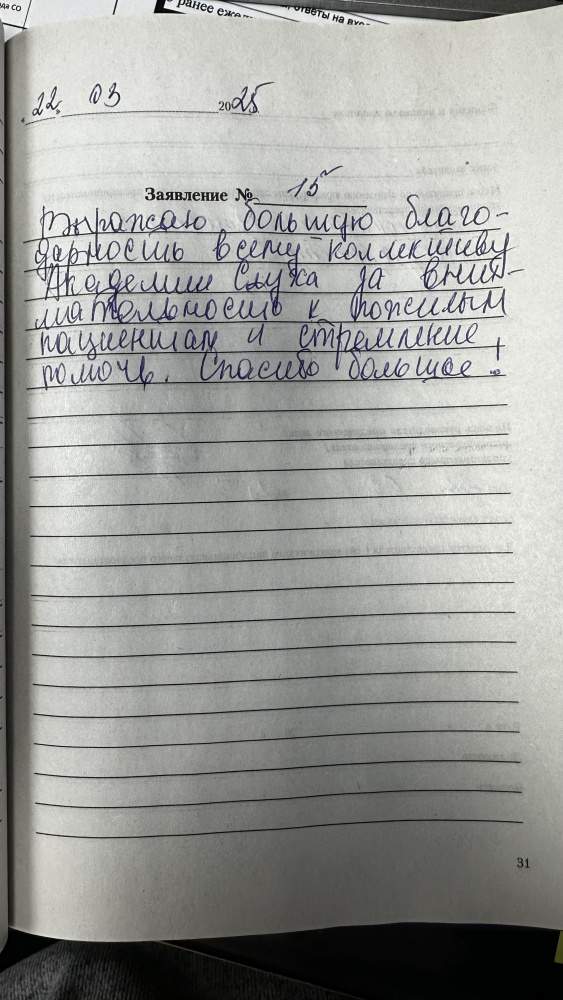 да со
ранее еже
, ответы на вхо
22. 03 2025
Заявление № 15
Выражаю большую благо-
дарность всему коллективу
Академии Слуха за вни-
мательность к пожилым
пациентам и стремление
помочь. Спасибо большое!
31